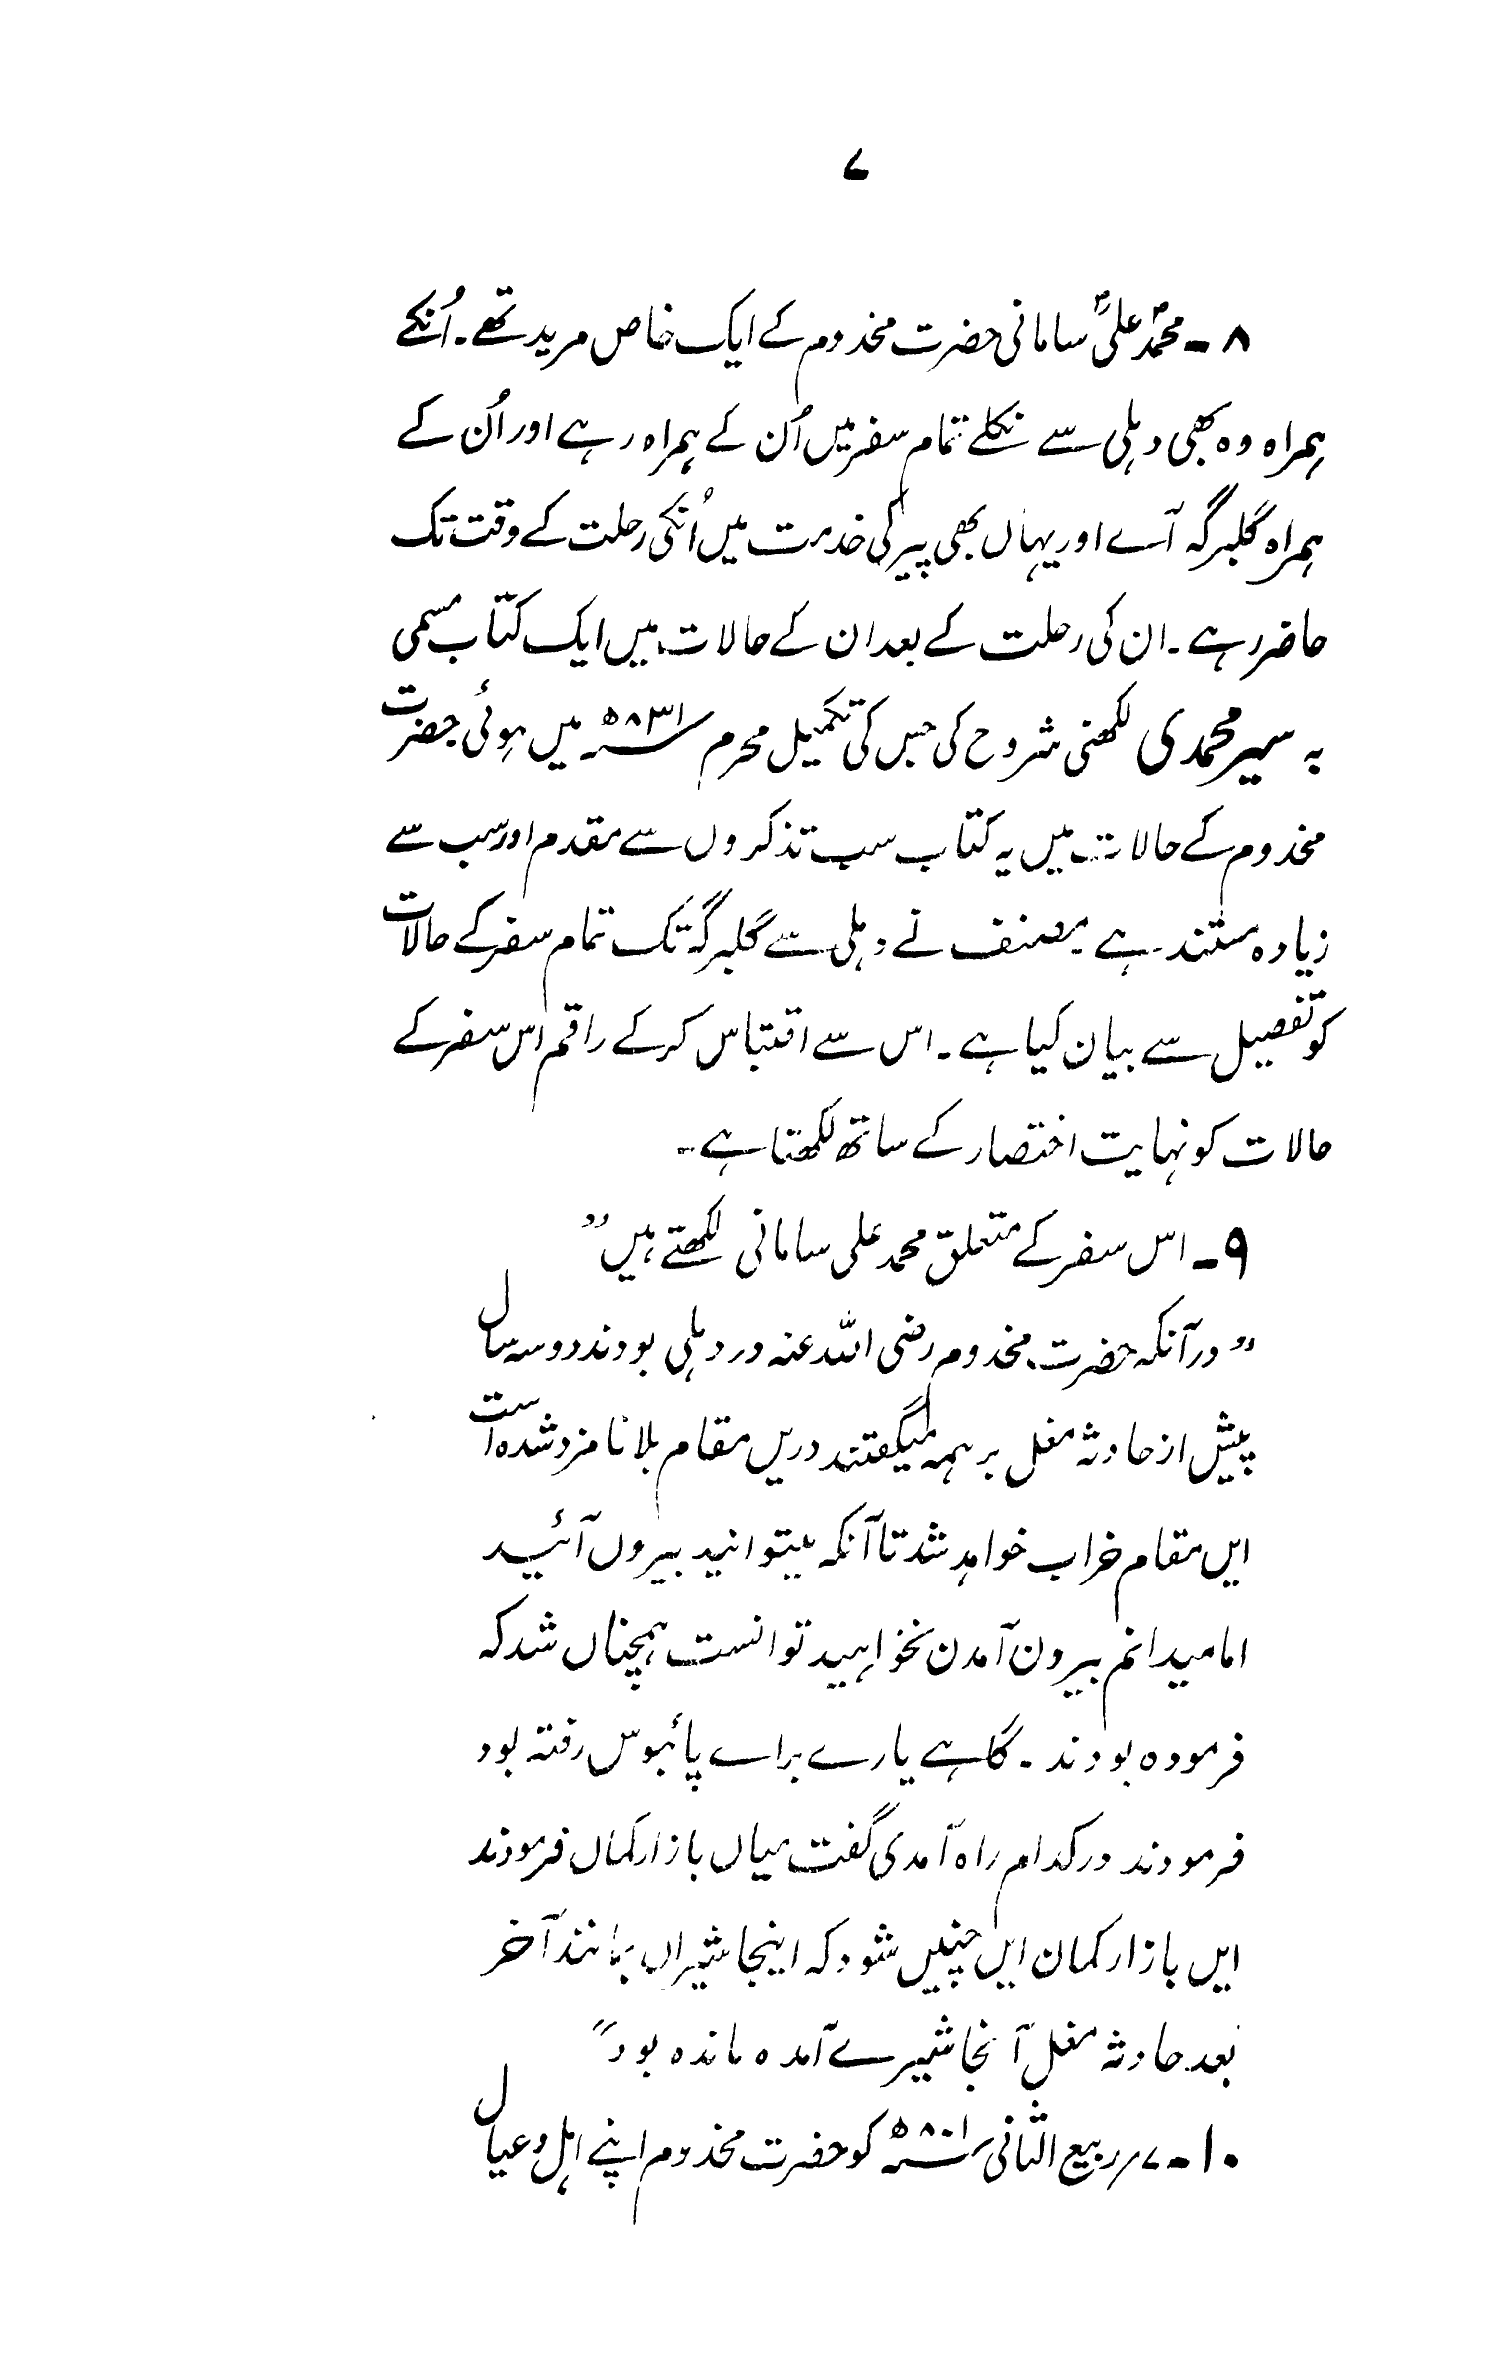 ۷
۸۔ محمدؐ علیؒ سامانی حضرت مخدوم کے ایک خاص مرید تھے۔ اُنکے
ہمراہ وہ بھی دہلی سے نکلے تمام سفر میں اُن کے ہمراہ رہے اور اُن کے
ہمراہ گلبرگہ آے اور یہاں بھی پیر کی خدمت میں اُنکی رحلت کے وقت تک
حاضر رہے۔ ان کی رحلت کے بعد ان کے حالات میں ایک کتاب مسمی
بہ سیر محمدی لکھنی شروع کی جس کی تکمیل محرم ۸۳۱ھ میں ہوئی حضرت
مخدوم کے حالات میں یہ کتاب سب تذکروں سے مقدم اور سب سے
زیادہ مستند ہے۔ مصنف نے دہلی سے گلبرگہ تک تمام سفر کے حالات
کو تفصیل سے بیان کیا ہے۔ اس سے اقتباس کر کے راقم اس سفر کے
حالات کو نہایت اختصار کے ساتھ لکھتا ہے۔
۹۔ اس سفر کے متعلق محمد علی سامانی لکھتے ہیں ”
” در آنکہ حضرت مخدوم رضی اللہ عنہ در دہلی بودند دو سہ سال
پیش از حادثہ مغل بر ہمہ میگفتند دریں مقام بلا نامزد شدہ است
ایں مقام خراب خواہد شد تا آنکہ میتوانید بیروں آئید
اما میدانم بیرون آمدن نخواہید توانست ہمچناں شد کہ
فرمودہ بودند۔ گاہے یارے براے پائبوس رفتہ بود
فرمودند در کدام راہ آمدی گفت میاں بازار کماں فرمودند
ایں بازار کمان ایں چنیں شود کہ اینجا شیراں بمانند آخر
بعد حادثہ مغل آنجا شیرے آمدہ ماندہ بود“
۱۰۔ ۷؍ ربیع الثانی ۸۰۱ھ کو حضرت مخدوم اپنے اہل و عیال